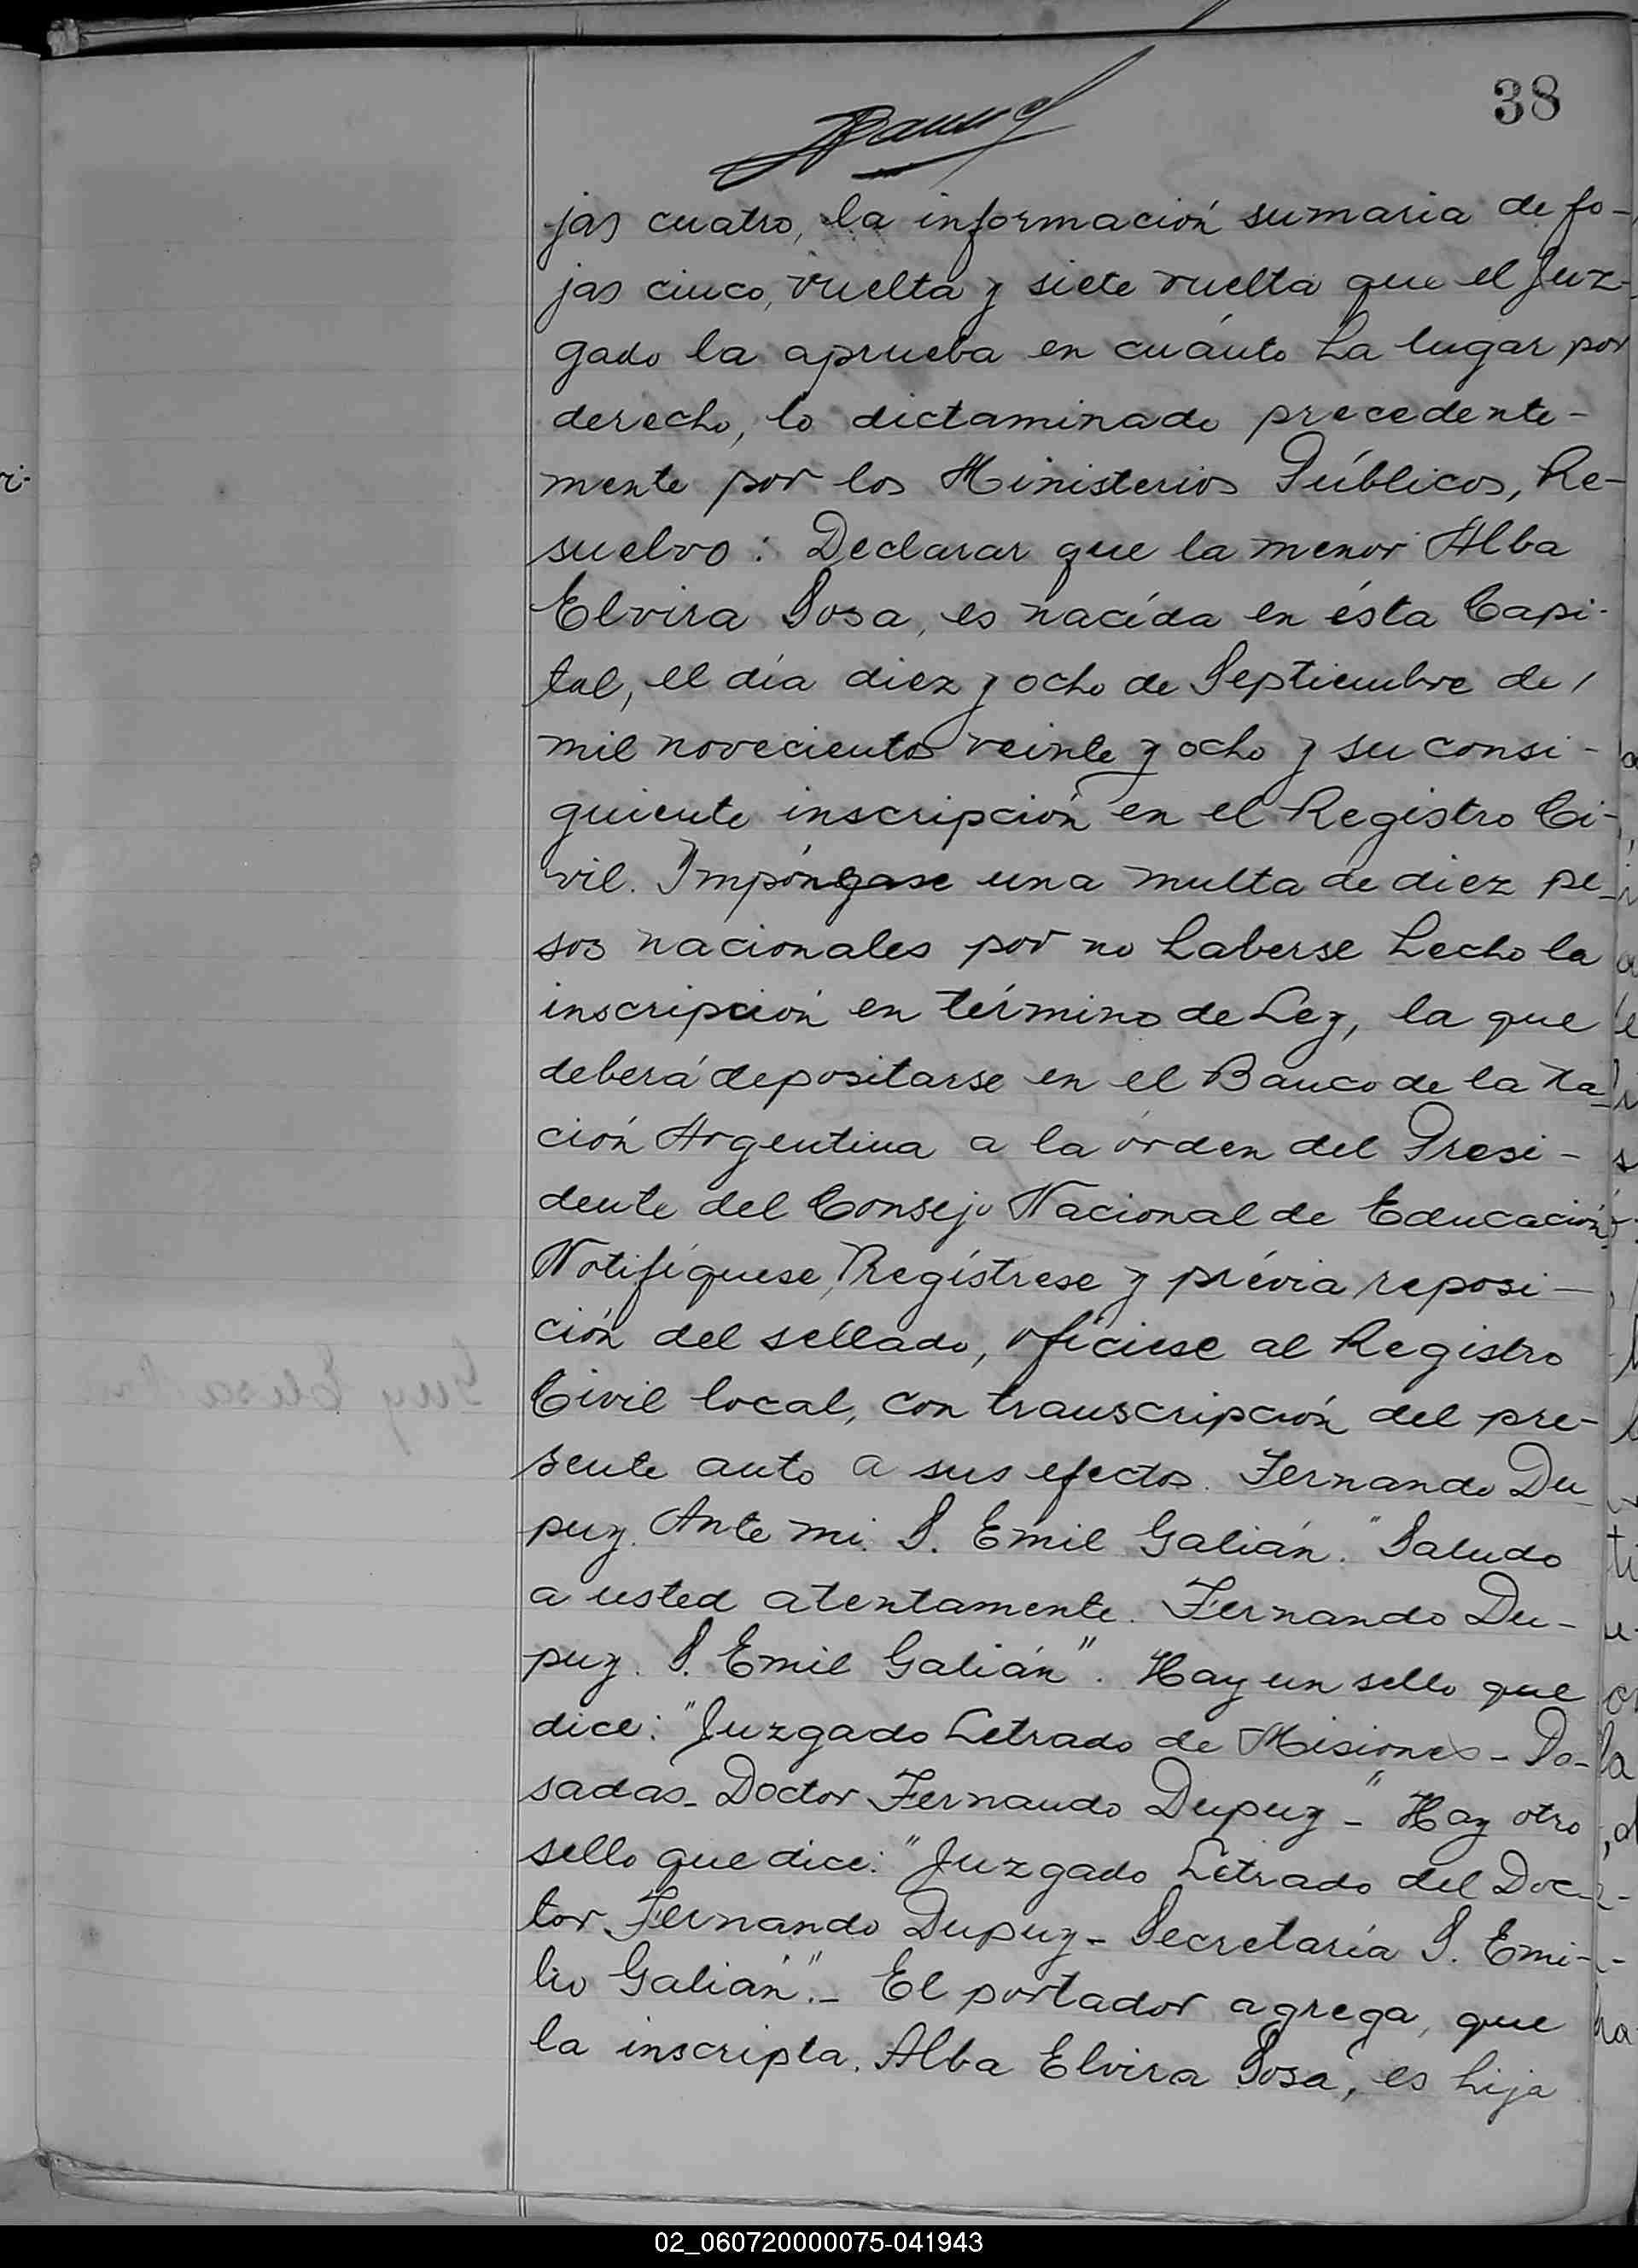 38
jas cuatro, la información sumaria de fo-
jas cinco, vuelta y siete vuelta que el Juz-
gado la aprueba en cuánto ha lugar por
derecho, lo dictaminado precedente-
mente por los Ministerios Públicos, Re-
suelvo: Declarar que la menor Alba
Elvira Sosa, es nacída en ésta Capi-
tal, el día diez y ocho de Septiembre de
mil novecientos veinte y ocho y su consi-
guiente inscripción en el Registro Ci-
vil. Impóngase una multa de diez pe-
sos nacionales por no haberse hecho la
inscripción en término de Ley, la que
deberá depositarse en el Banco de la Na-
ción Argentina a la órden del Presi-
dente del Consejo Nacional de Educación.
Notifíquese, Regístrese y prévia reposi-
ción del sellado, ofíciese al Registro
Civil local, con transcripción del pre-
sente auto a sus efectos. Fernando Du-
puy. Ante mi. S. Emil Galián." Saludo
a usted atentamente. Fernando Du-
puy. S. Emil Galián". Hay un sello que
dice: "Juzgado Letrado de Misiones - Po-
sadas - Doctor Fernando Dupuy -" Hay otro
sello que dice: "Juzgado Letrado del Doc-
tor Fernando Dupuy - Secretaría S. Emi-
lio Galián".- El portador agrega, que
la inscripta, Alba Elvira Sosa, es hija
02_060720000075-041943